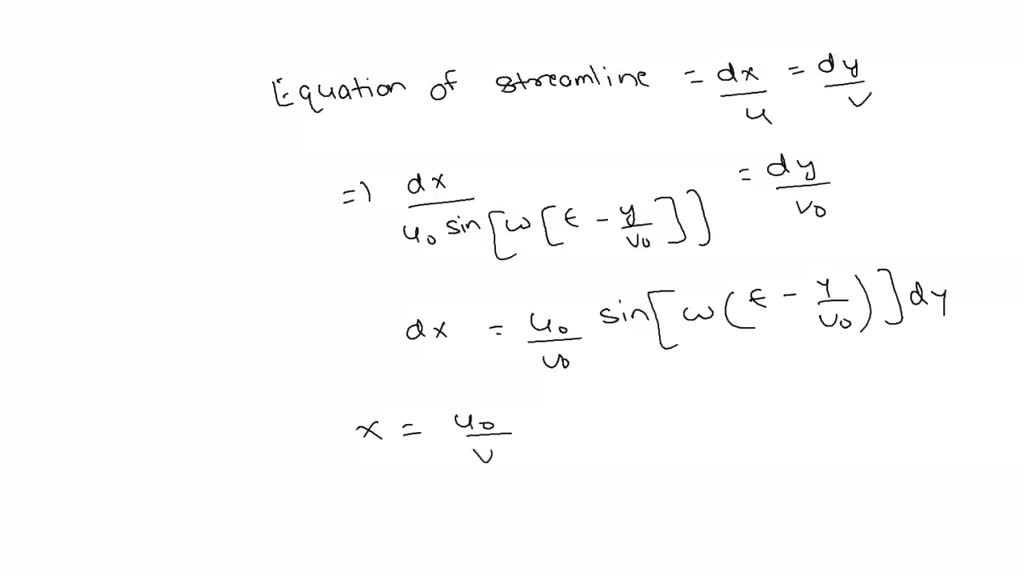 Equation of streamline = dx/u = dy/v
=> dx/(u₀ sin[ω[t - y/v₀]]) = dy/v₀
dx = u₀/v₀ sin[ω(t - y/v₀)]dy
x = u₀/v